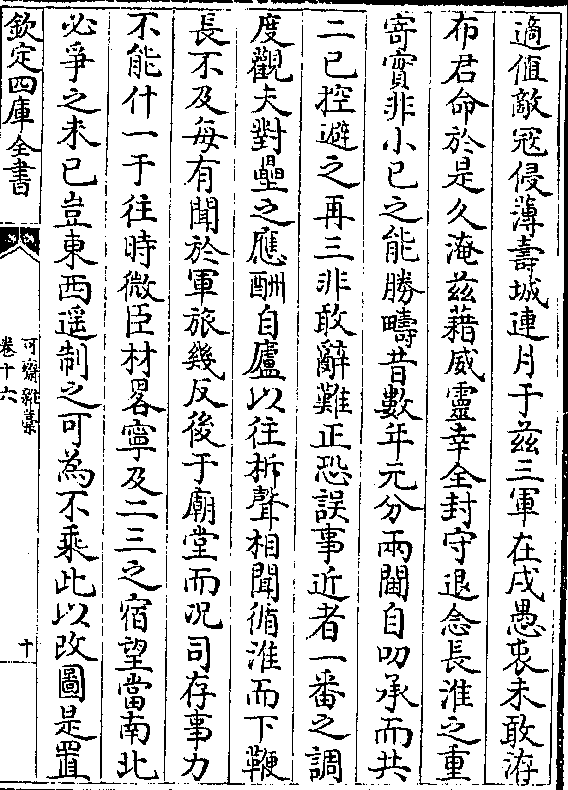 適值敵冦侵薄壽城連月于兹三軍在戍愚衷未敢洊
布君命於是久淹兹藉威靈幸全封守退念長淮之重
寄實非小已之能勝疇昔數年元分兩閫自叨承而共
二已控避之再三非敢辭難正恐誤事近者一番之調
度觀夫對壘之應酬自廬以往柝聲相聞循淮而下鞭
長不及每有聞於軍旅幾反後于廟堂而况司存事力
不能什一于往時微臣材畧寧及二三之宿望當南北
必爭之未已豈東西遥制之可為不乘此以改圖是置
欽定四庫全書
可齋雜藁
卷十六
十